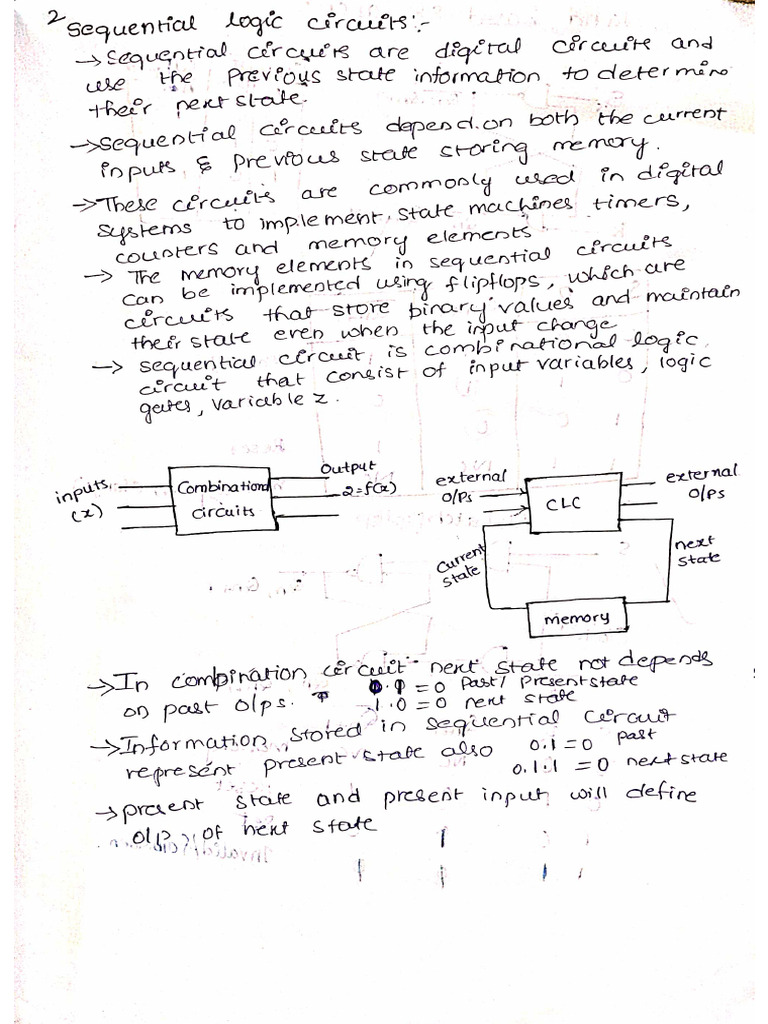 2 Sequential logic circuits:-
→ Sequential circuits are digital circuits and
use the previous state information to determine
their next state.
→ Sequential circuits depend on both the current
inputs & previous state storing memory.
→ These circuits are commonly used in digital
systems to implement, state machines timers,
counters and memory elements
→ The memory elements in sequential circuits
can be implemented using flipflops, which are
circuits that store binary values and maintain
their state even when the input change
→ sequential circuit, is combinational logic,
circuit that consist of input variables, logic
gates, variable z.
inputs
(x)
Combinational
circuits
output
z=f(x)
external
o/ps
CLC
external
o/ps
current
state
next
state
memory
→ In combination circuit next state not depends
on past o/ps.
0.1 = 0 Past / Present state
1.0 = 0 next state
→ Information, stored in sequential circuit
represent present state also 0.1 = 0 past
0.1.1 = 0 next state
→ present state and present input, will define
o/p, of next state